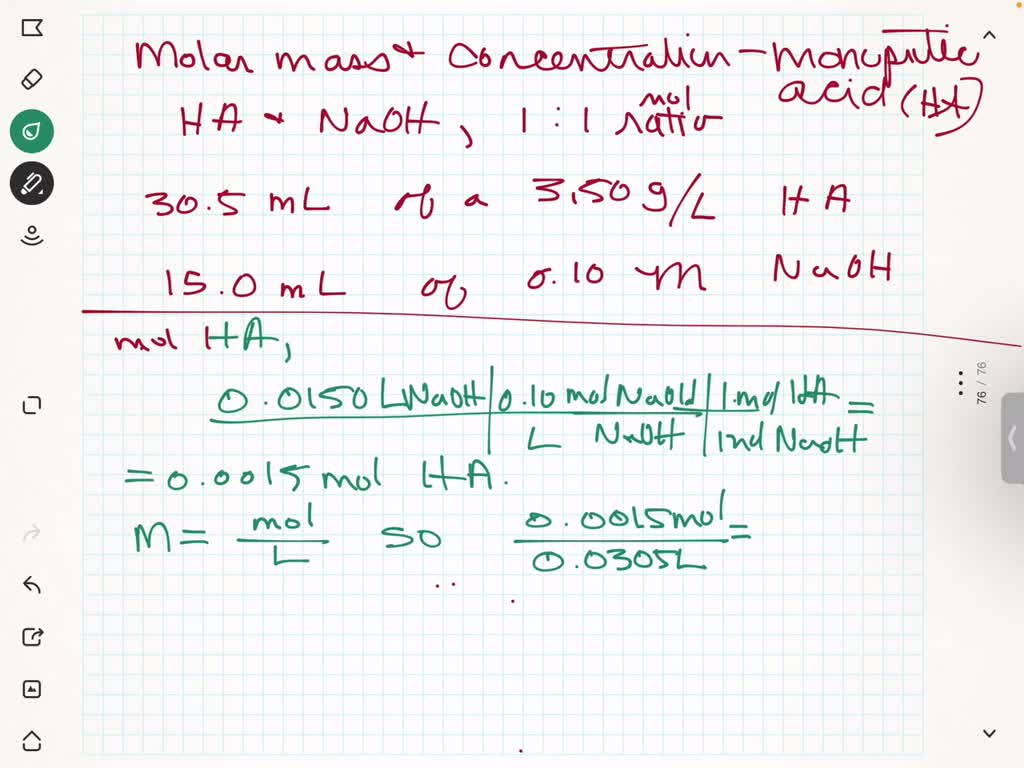 Molar mass & Concentration - monoprotic
acid (HA)
HA & NaOH, 1 : 1 mol ratio
30.5 mL of a 3.50 g/L HA
15.0 mL of 0.10 M NaOH
mol HA,
0.0150 L NaOH | 0.10 mol NaOH | 1 mol HA =
L NaOH | 1 mol NaOH
= 0.0015 mol HA.
M = mol / L so 0.0015 mol / 0.0305 L =
76 / 76